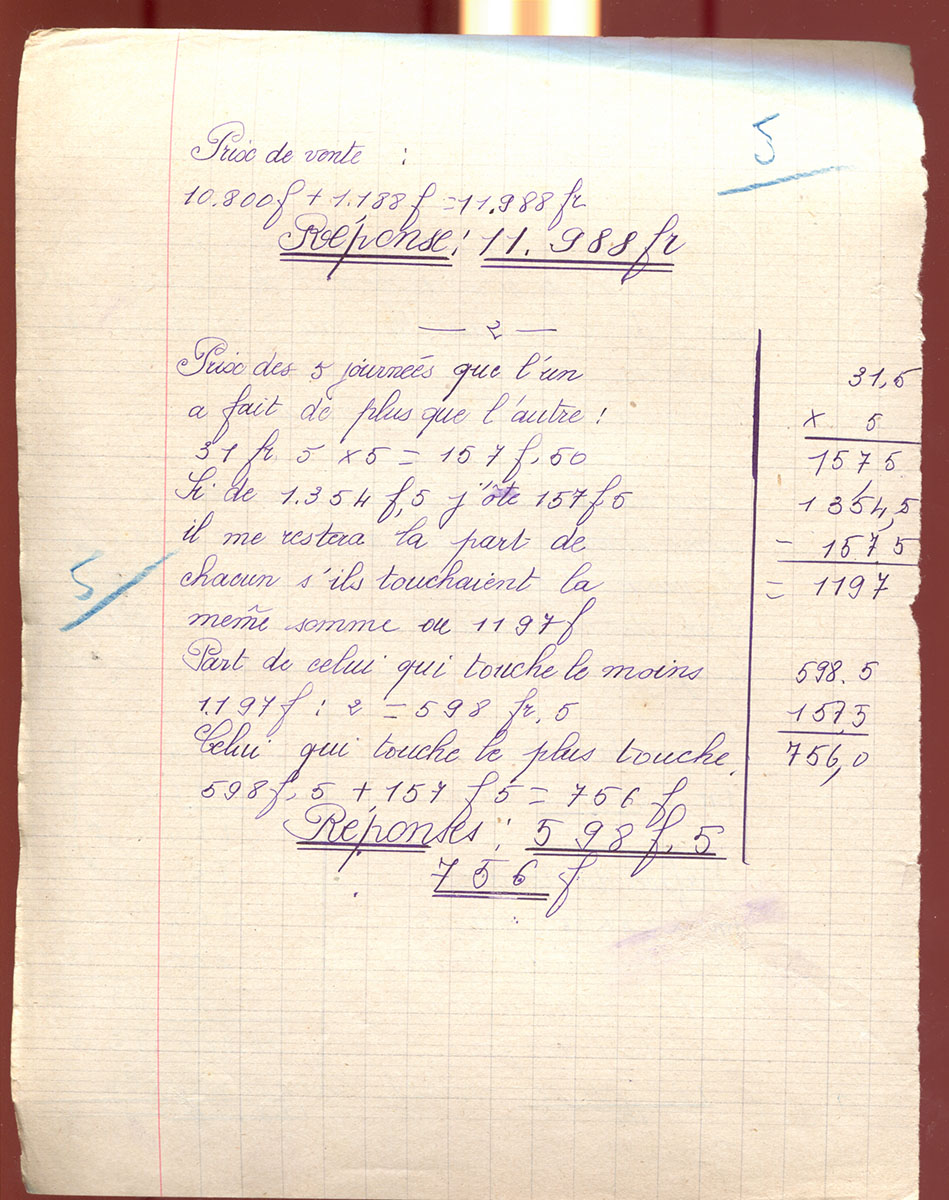 5
Prix de vente :
10.800f + 1.188f = 11.988 fr
Réponse : 11.988 fr
— 2 —
Prix des 5 journeés que l'un
a fait de plus que l'autre :
31 fr 5 x 5 = 157 f,50
Si de 1.354 f,5 j'ôte 157f5
il me restera la part de
chacun s'ils touchaient la
même somme ou 1197f
Part de celui qui touche le moins
1.197f : 2 = 598 fr,5
Celui qui touche le plus touche
598f,5 + 157 f 5 = 756 f
Réponses : 598f,5
756 f
31,5
x 5
157,5
1354,5
- 157,5
= 1197
598.5
157,5
756,0
5